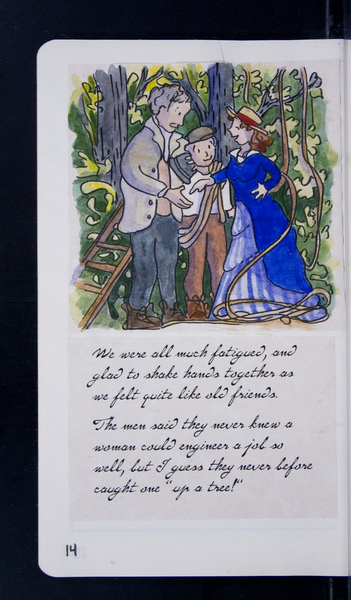 We were all much fatigued, and
glad to shake hands together as
we felt quite like old friends.
The men said they never knew a
woman could engineer a job so
well, but I guess they never before
caught one "up a tree!"
14